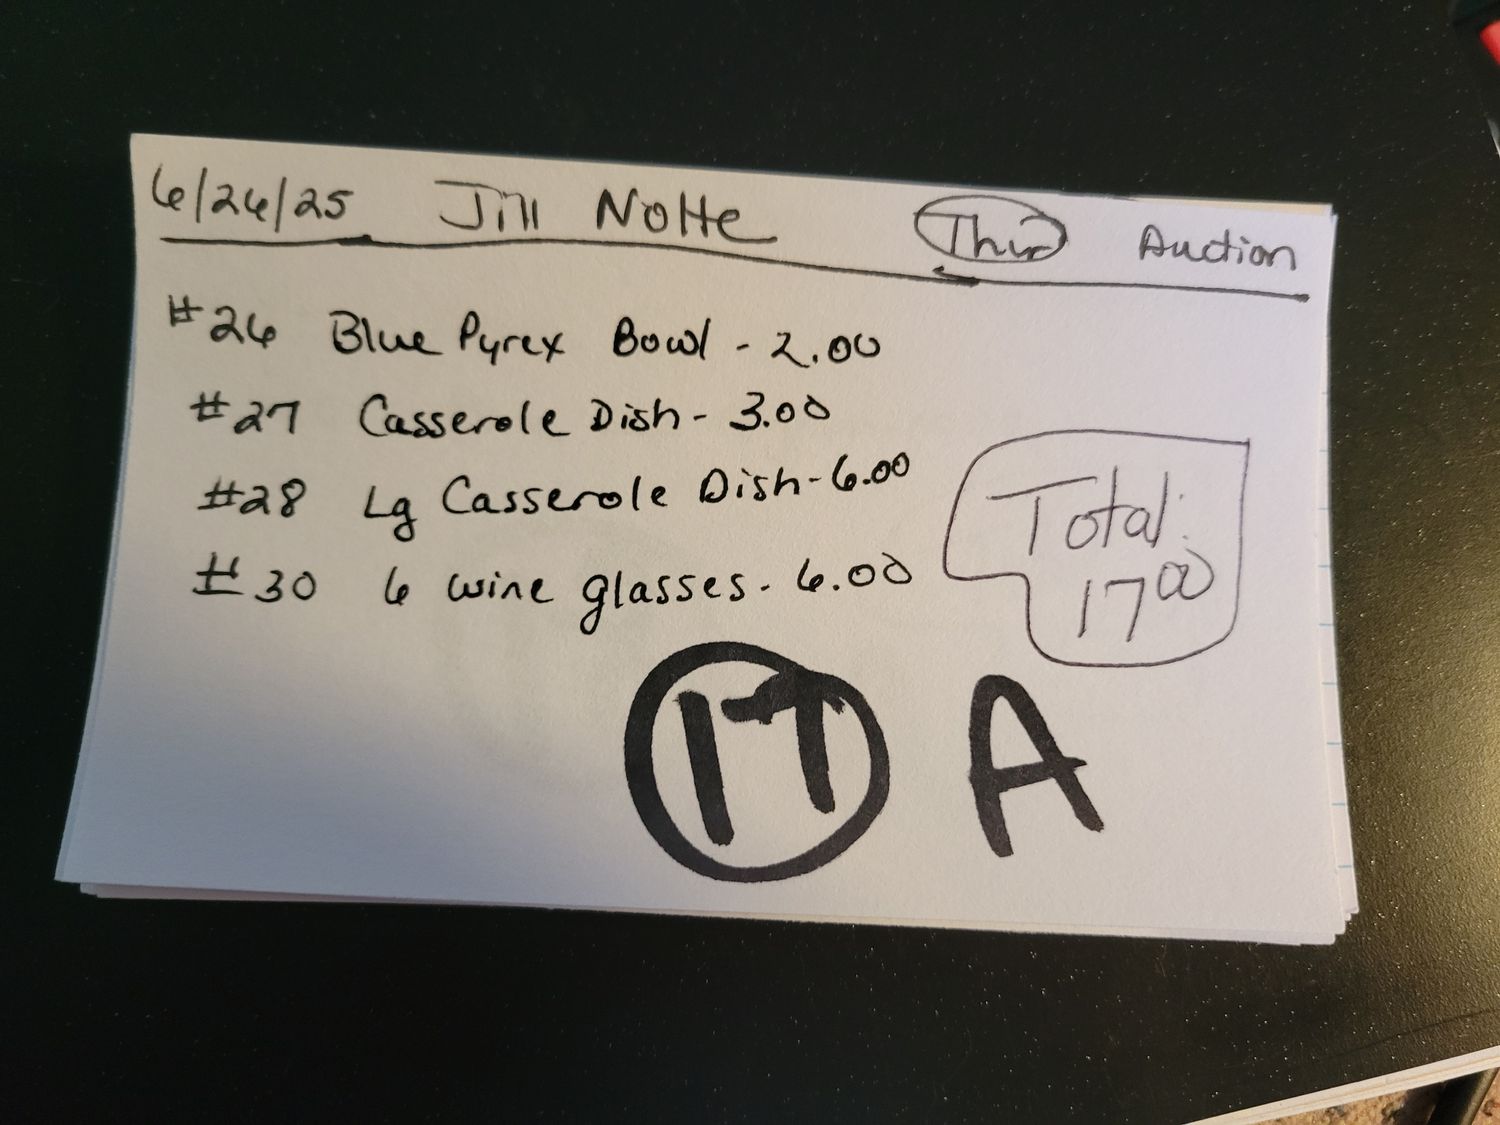 6/26/25 Jill Nolte Thur Auction
#26 Blue Pyrex Bowl - 2.00
#27 Casserole Dish - 3.00
#28 Lg Casserole Dish - 6.00
#30 6 wine glasses - 6.00
Total:
17.00
17 A